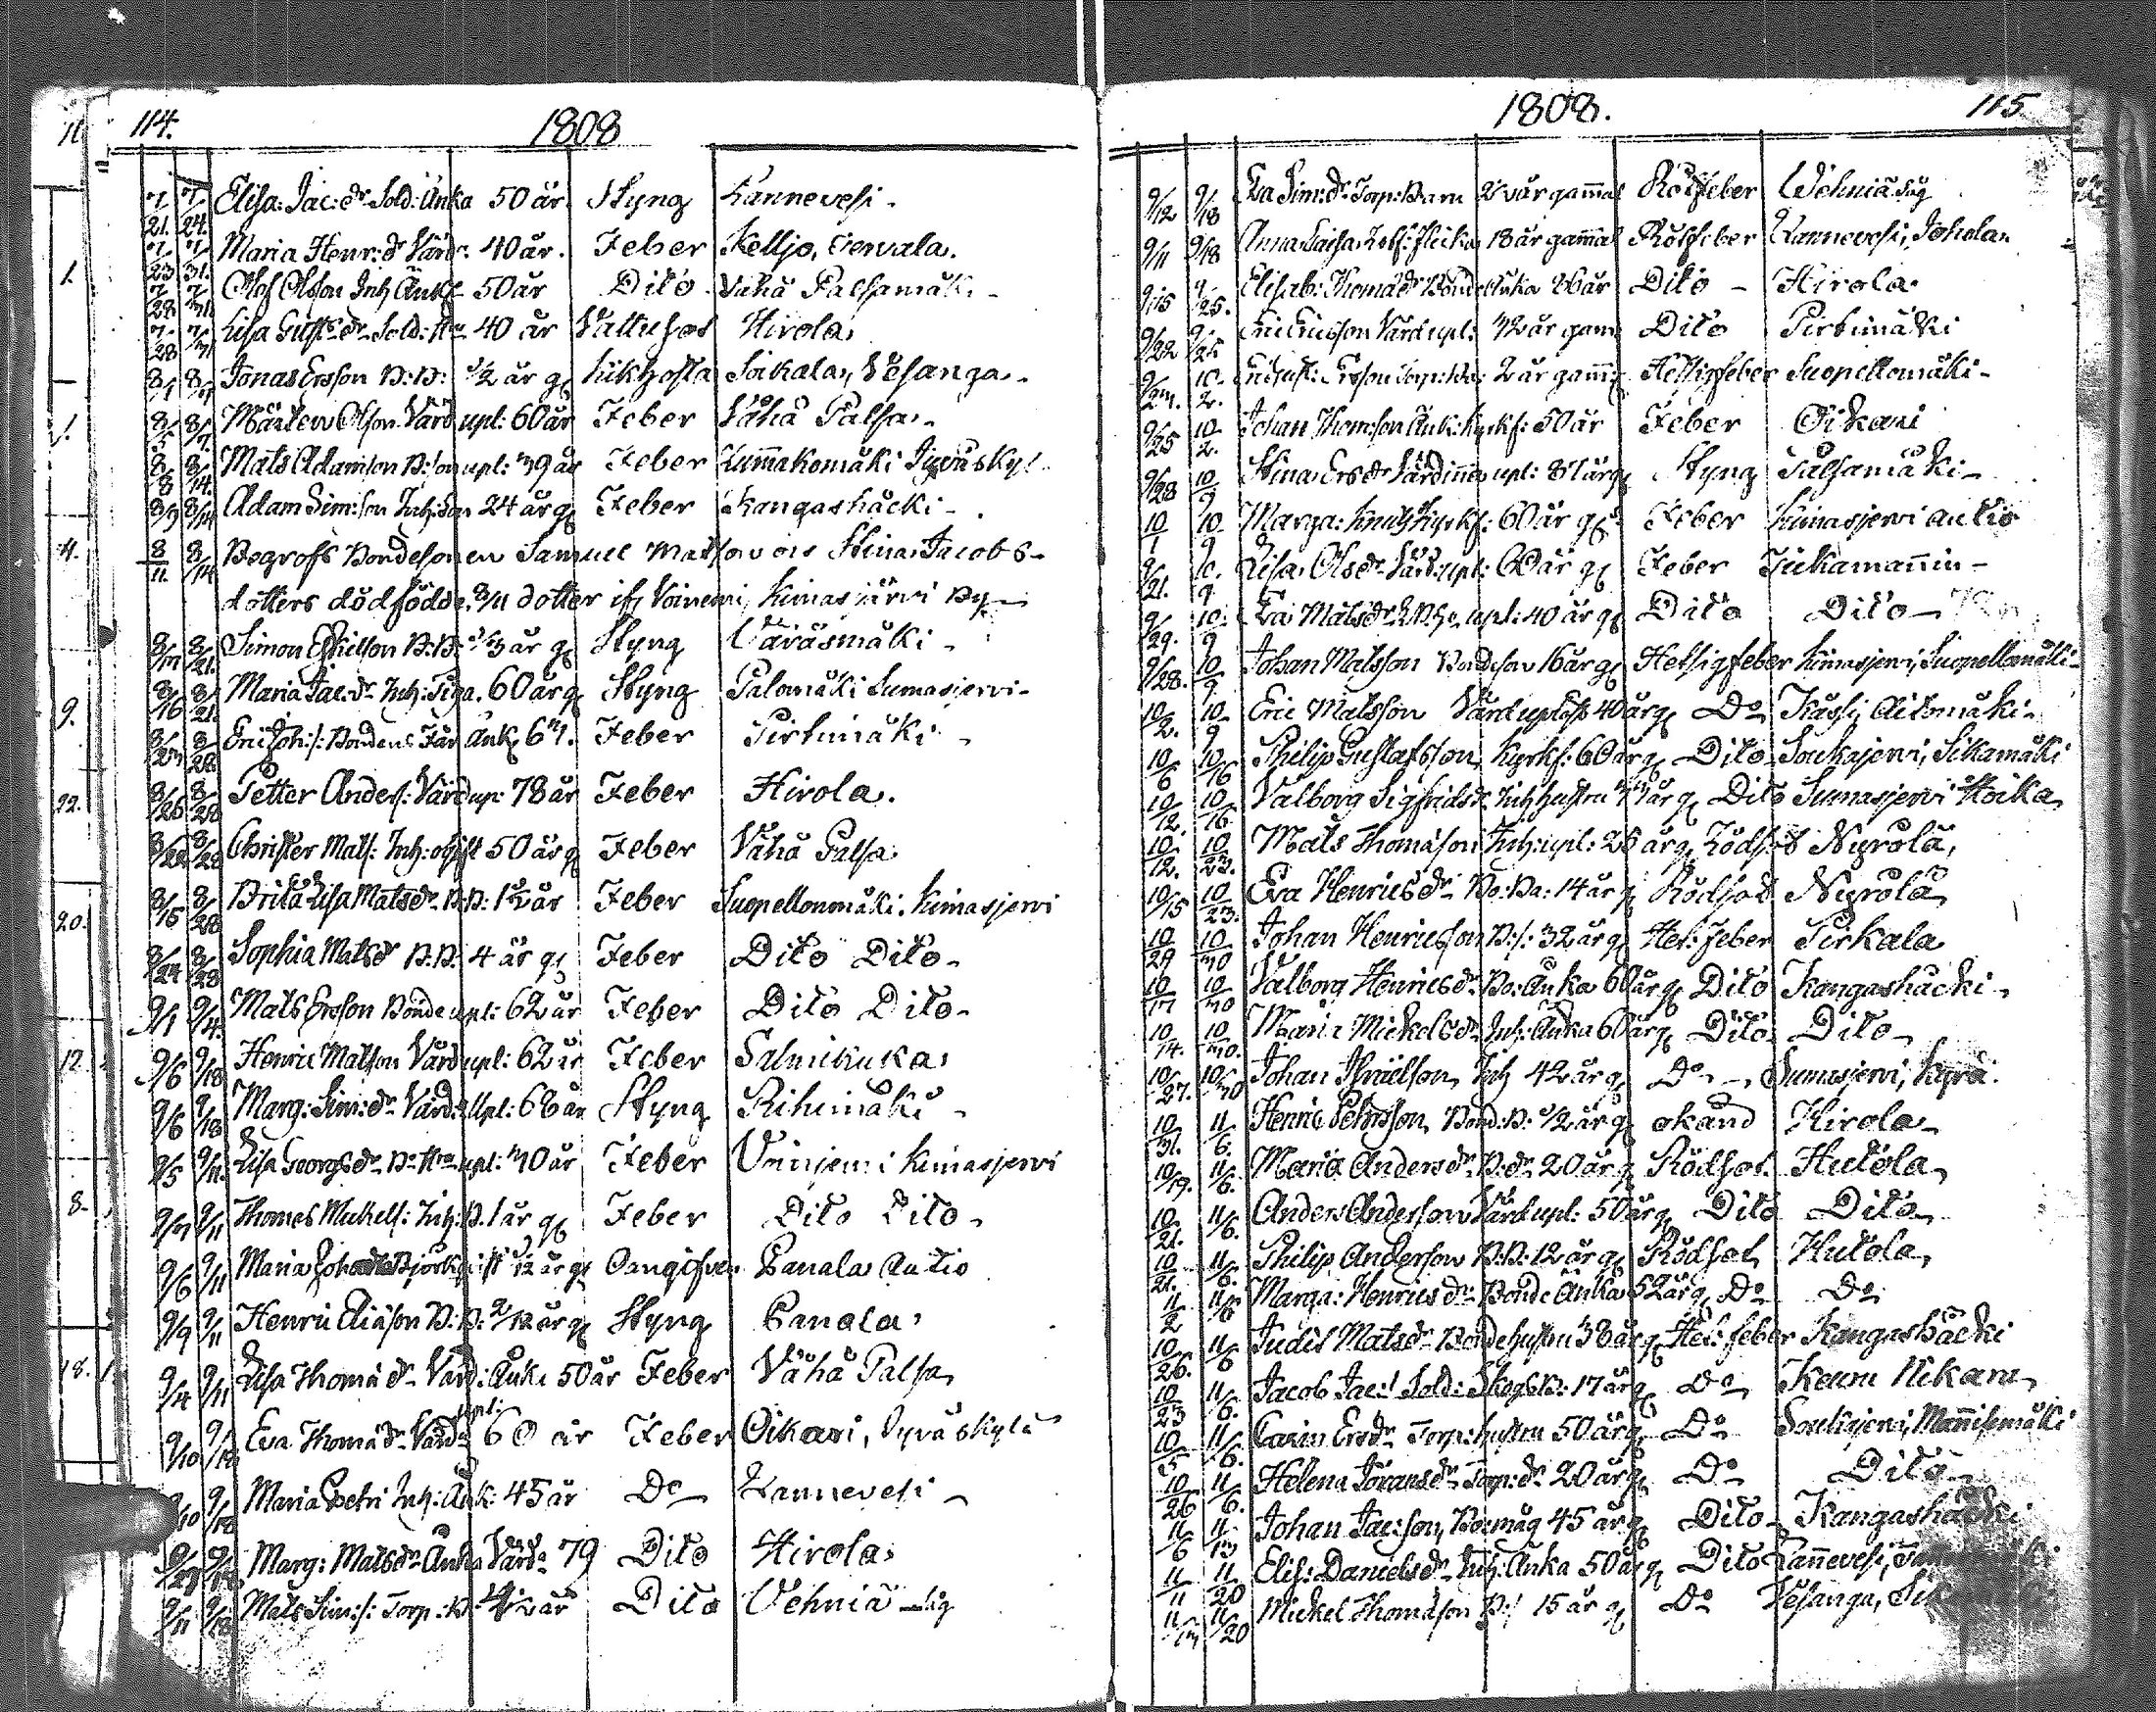 114. 1808
7/21. 7/24. Elisa: Jac:dr Sold: Änka 50 år Styng Kannevesi.
7/23 7/31. Maria Henr:dr Värd: 40 år. Feber Keljo,
7/28 7/31 Olof Olsson Inh Änkl 50 år Dito Vähä Palsamäki
7/28 7/31 Lisa Gust:dr Sold: 40 år Vattusot Hirola
8/1 8/7 Jonas Ersson B:B: 1/2 år g Kikhosta Vesanga
8/5 8/7. Mårten Olsson Värd upl: 60 år Feber Vähä Palsa
8/8 8/14. Mats Adamson B:son upl: 39 år Feber Jyväskyl
8/9 8/14 Adam Sim:son Inh:son 24 år g Feber Kangashäcki
8/11. 8/14 Begrofs Bondesonen Samuel Matson os Stina Jacobs-
dotters dödfödde 8/11 dotter if Kimasjärvi By
8/17 8/21. Simon Eskilson B:B: 1/3 år g Styng Väräsmäki
8/16 8/21. Maria Jac:dr Inh: Piga. 60 år g Styng Palomäki Sumasjervi
8/27 8/28 Eric Joh:s: Bondens Far Änk 67. Feber Pirtimäki
8/26 8/28 Petter Anders: Värd upl: 78 år Feber Hirola.
8/22 8/28 Christer Mats: Inh: ogift 50 år g Feber Vähä Palsa
8/15 8/28 Brita Lisa Matsdr B:B: 1 1/2 år Feber Suopellonmäki. Kimasjervi
8/24 8/28 Sophia Matsdr B:B: 4 år g Feber Dito Dito
9/1 9/4. Mats Ersson Bonde upl: 62 år Feber Dito Dito
9/6 9/18 Henric Matson Värd upl: 62 år Feber Salmikuka
9/6 9/18 Marg: Sim:dr Värd: Upl: 68 år Styng Rihimäki
9/5 9/11. Lisa Georgsdr upl: 30 år Feber Kimasjervi
9/7 9/11 Thomes Mickels: Inh: B. 1 år g Feber Dito Dito
9/6 9/11 Maria 1/12 år g Oangifven Panala Autio
9/9 9/11 Henric Eliäson B:B: 2/12 år g Styng Panala
9/4 9/11 Lisa Thomädr Värd: Änka 50 år Feber Vähä Palsa
9/10 9/18 Eva Thomädr Värd: upl: 60 år Feber Oikari, Jyväskylä
9/10 9/18 Maria Petri Inh: Änk: 45 år Do Kannevesi
9/18 Marg: Matsdr Änka Värd: 79 Dito Hirola
9/11 9/18 Mats Sim:s: Torp: B 4 1/2 år Dito Vehniä såg
1808. 115
9/12 9/18 Eva Sim:dr Torp: Barn 2 år gammal Rötfeber Wehniä såg
9/11 9/18 Anna Caisa flicka 18 år gammal Rötfeber Kannevesi, Johola
9/15 9/25. Elisab: Thomädr Bonde Änka 66 år Dito Hirola
9/22 9/25 Eric Ericsson Värd upl: 72 år gam Dito Pirtimäki
9/27. 10/2. Ersson Torp: 2 år gam Hettigfeber Suopellomäki
9/25 10/2. Johan Thom:son Änk: Kyrkf: 50 år Feber Oikari
9/28 10/9 Stina Ersdr Värdinna upl: 81 år g Styng Palsamäki
10/1 10/9 Marga: Kyrkf: 60 år g Feber Kimasjervi Autio
9/21. 10/9 Lisa Olsdr Värd: upl: 60 år g Feber Tickamannin
9/29. 10/9 Eva Matsdr upl: 40 år g Dito Dito
9/28. 10/9 Johan Matsson Bondeson 16 år g Hetsigfeber Kimasjervi, Suopellomäki
10/2. 10/9 Eric Matsson Värd 40 år g Do Kässi Aitomäki
10/6 10/16 Philip Gustafsson Kyrkf: 60 år g Dito Soukajervi, Sikamäki
10/12. 10/16. Valborg Sigfridsdr Inh hustru år g Dito Sumasjervi Hoika
10/12. 10/23. Mats Thomäson Inh: upl: 26 år g Rödsot Nyrola
10/15 10/23. Eva Henricsdr Bo: Ba: 14 år g Rödsot Nyrola
10/29 10/30 Johan Henricson B:s: 32 år g Het: Feber Pirkala
10/17 10/30 Valborg Henricsdr Bo: Änka 60 år g Dito Kangashäcki
10/14. 10/30. Maria Mickelsdr Inh: Änka 60 år g Dito Dito
10/27. 10/30 Johan Israelson Inh 42 år g Do Sumasjervi, Kyrö.
10/31. 11/6. Henric Petersson Bond: B: 1/2 år g okänd Hirola
10/19. 11/6. Maria Andersdr B:dr 20 år g Rödsot Hutola
10/21. 11/6. Anders Anderson Värd upl: 50 år g Dito Dito
10/21. 11/6. Philip Anderson B:B: 12 år g Rödsot Hutola
11/2 11/6 Marga: Henricsdr Bonde Änka 52 år g Do Do
10/26. 11/6 Judit Matsdr Bonde hustru 38 år g Het: feber Kangashäcki
10/23 11/6. Jacob Jac:s Sold: Skogs B: 17 år g Do Keuru Nikara
10/5 11/6. Carin Ersdr Torp: hustru 50 år g Do Soukjervi, Mannisemäki
10/26 11/6. Helena Göransdr Torp: dr 20 år g Do Dito
11/6 11/13 Johan Jac:son Bo: måg 45 år g Dito Kangashäcki
11/11 11/20 Elis: Danielsdr Inh: Änka 50 år g Dito Kannevesi,
11/17 11/20 Mickel Thomäson B:s 15 år g Do Vesanga,